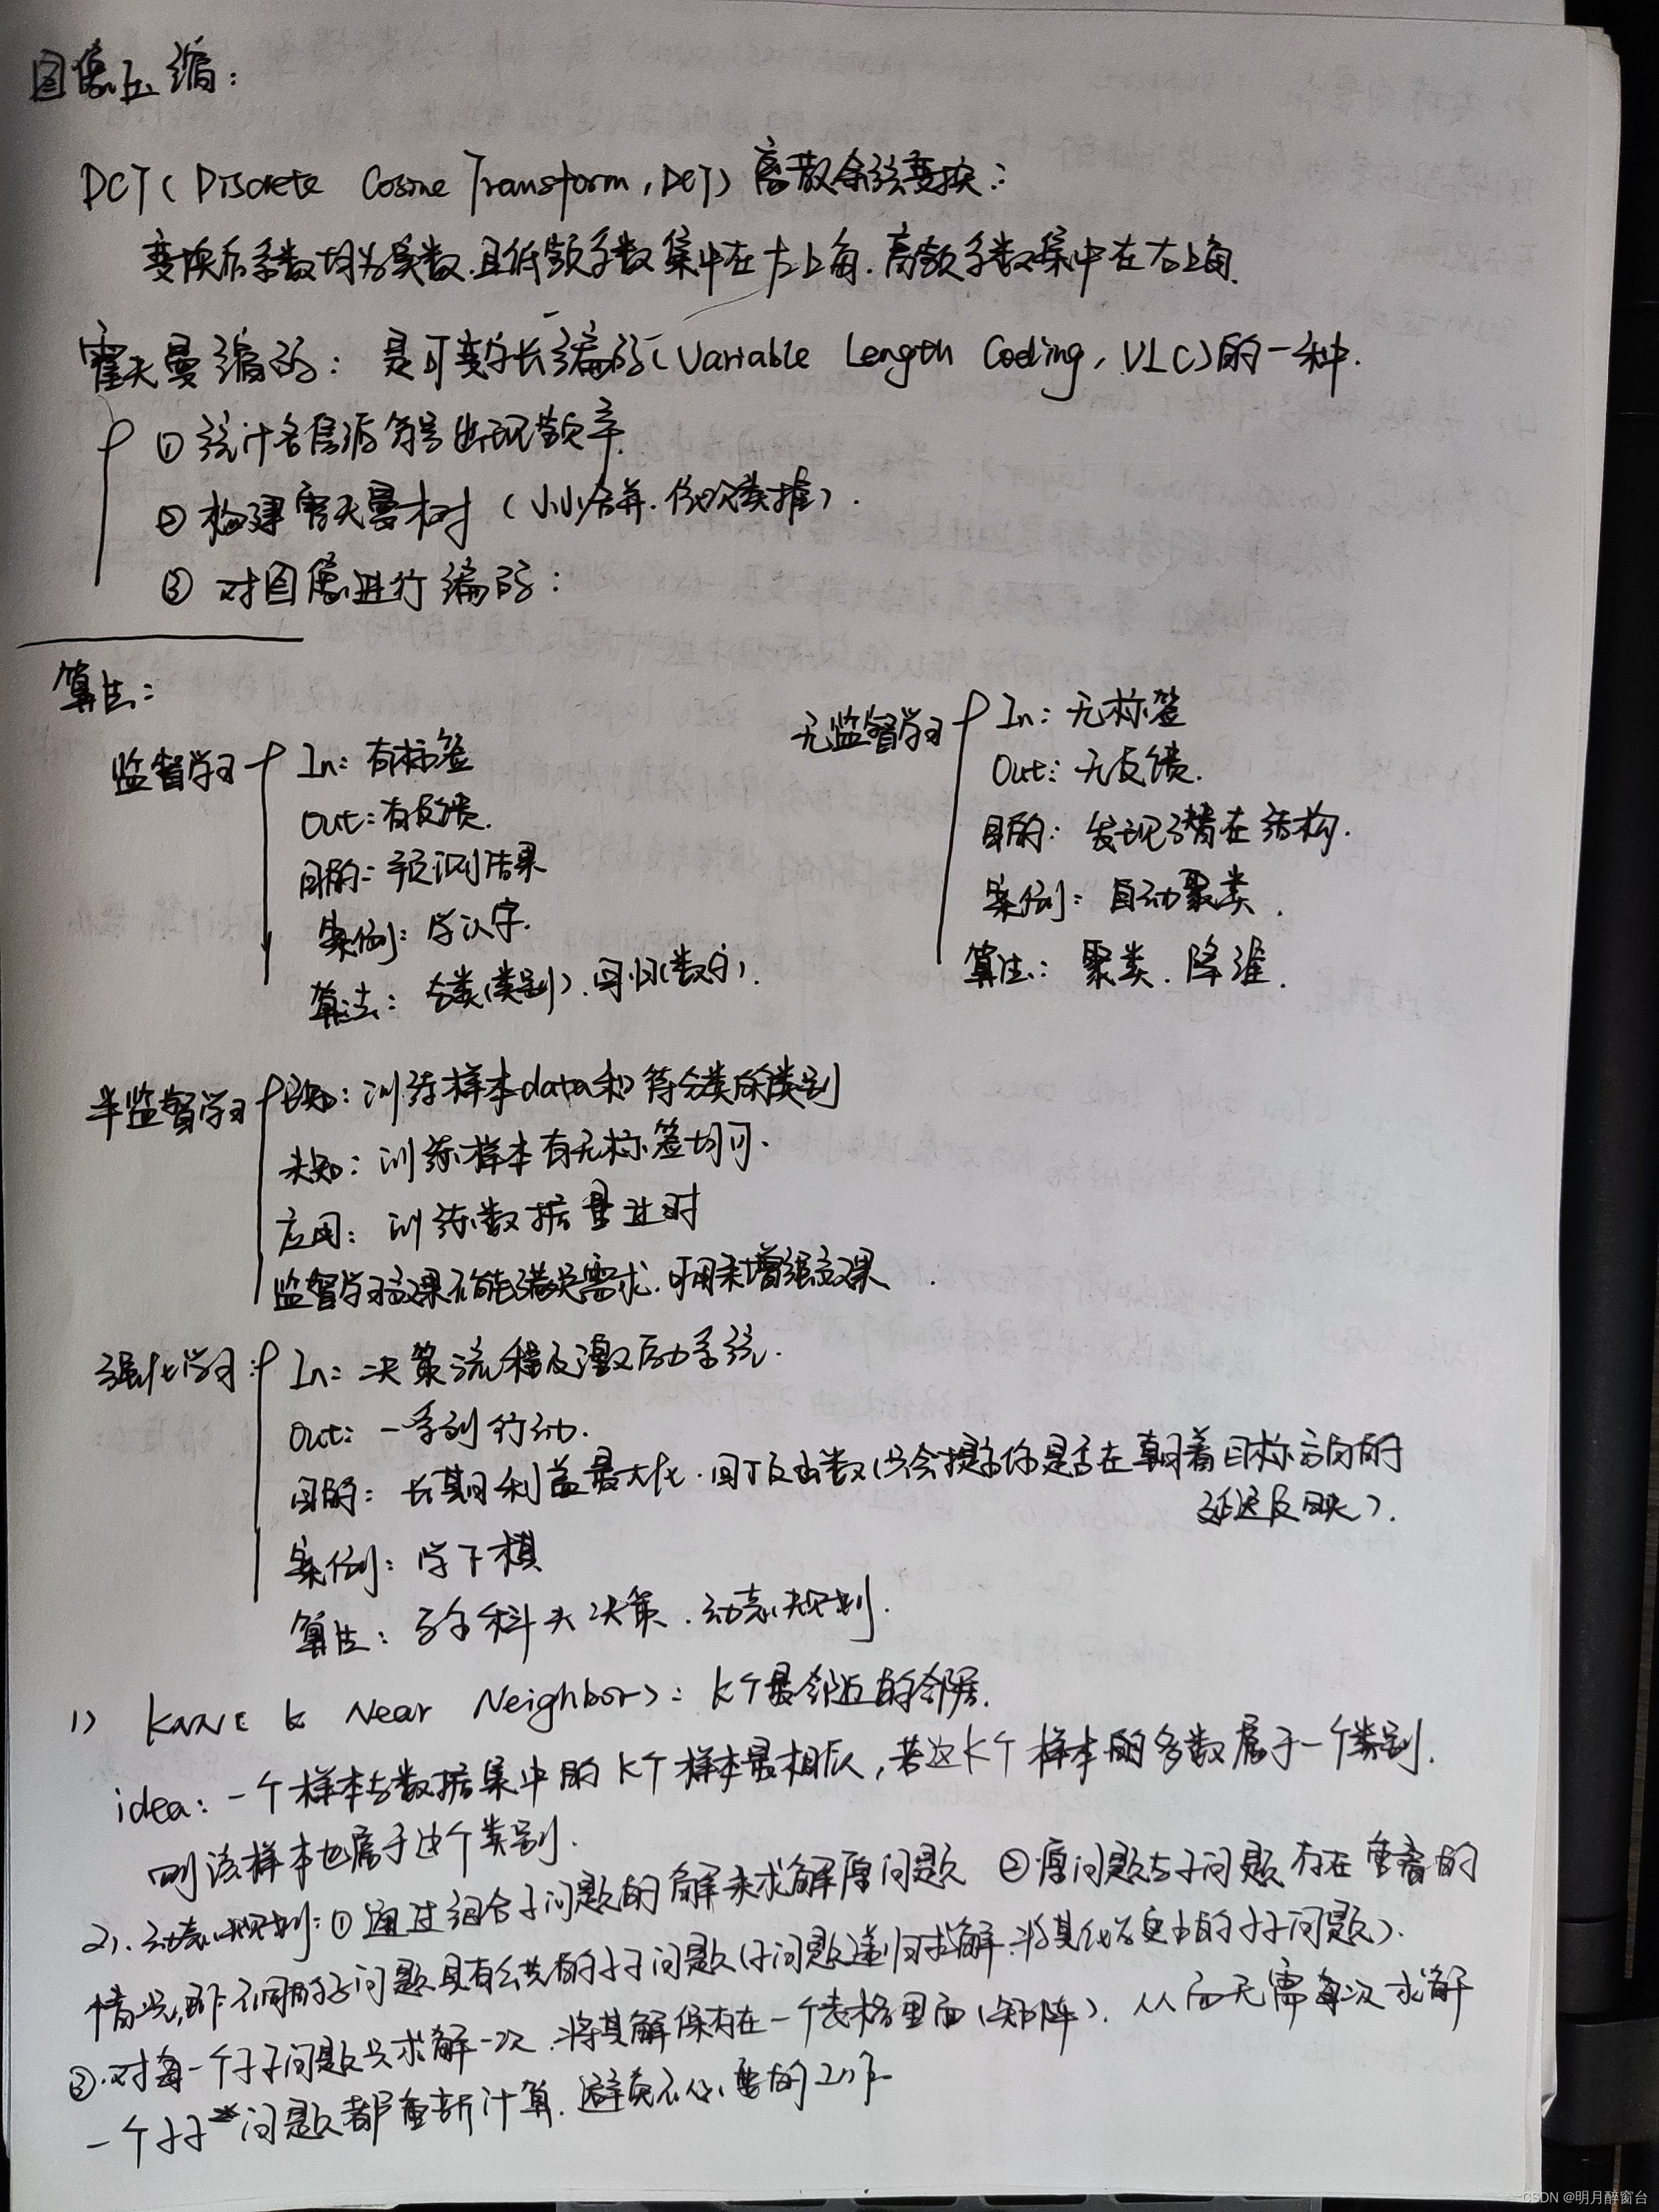 图像压缩：
DCT（Discrete Cosine Transform，DCT）离散余弦变换：
变换后系数均为实数，且低频系数集中在左上角，高频系数集中在右上角.
霍夫曼编码：是可变字长编码（Variable Length Coding，VLC）的一种.
① 统计各信源符号出现频率.
② 构建霍夫曼树（小小合并，依次类推）.
③ 对图像进行编码：
算法：
监督学习
In：有标签
Out：有反馈.
目的：预测结果
案例：学认字.
算法：分类（类别）、回归（数字）.
无监督学习
In：无标签
Out：无反馈.
目的：发现潜在结构.
案例：自动聚类.
算法：聚类、降维.
半监督学习
已知：训练样本data和待分类的类别
未知：训练样本有无标签均可.
应用：训练数据量过时
监督学习效果不能满足需求，可用来增强效果.
强化学习：
In：决策流程及激励系统.
Out：一系列行动.
目的：长期利益最大化，回报函数（只会提示你是否在朝着目标方向的
延迟反映）.
案例：学下棋
算法：马尔科夫决策、动态规划.
1） KNN（ k Near Neighbor）：k个最邻近的邻居.
idea：一个样本与数据集中的k个样本最相似，若这k个样本的多数属于一个类别.
则该样本也属于这个类别.
2）. 动态规划：① 通过组合子问题的解来求解原问题 ② 原问题与子问题存在重叠的
情况，即不同的子问题具有公共的子子问题（子问题递归求解，将其化为更小的子子问题）.
③. 对每一个子子问题只求解一次，将其解保存在一个表格里面（矩阵），从而无需每次求解
一个子子问题都重新计算，避免不必要的工作
CSDN @明月醉窗台